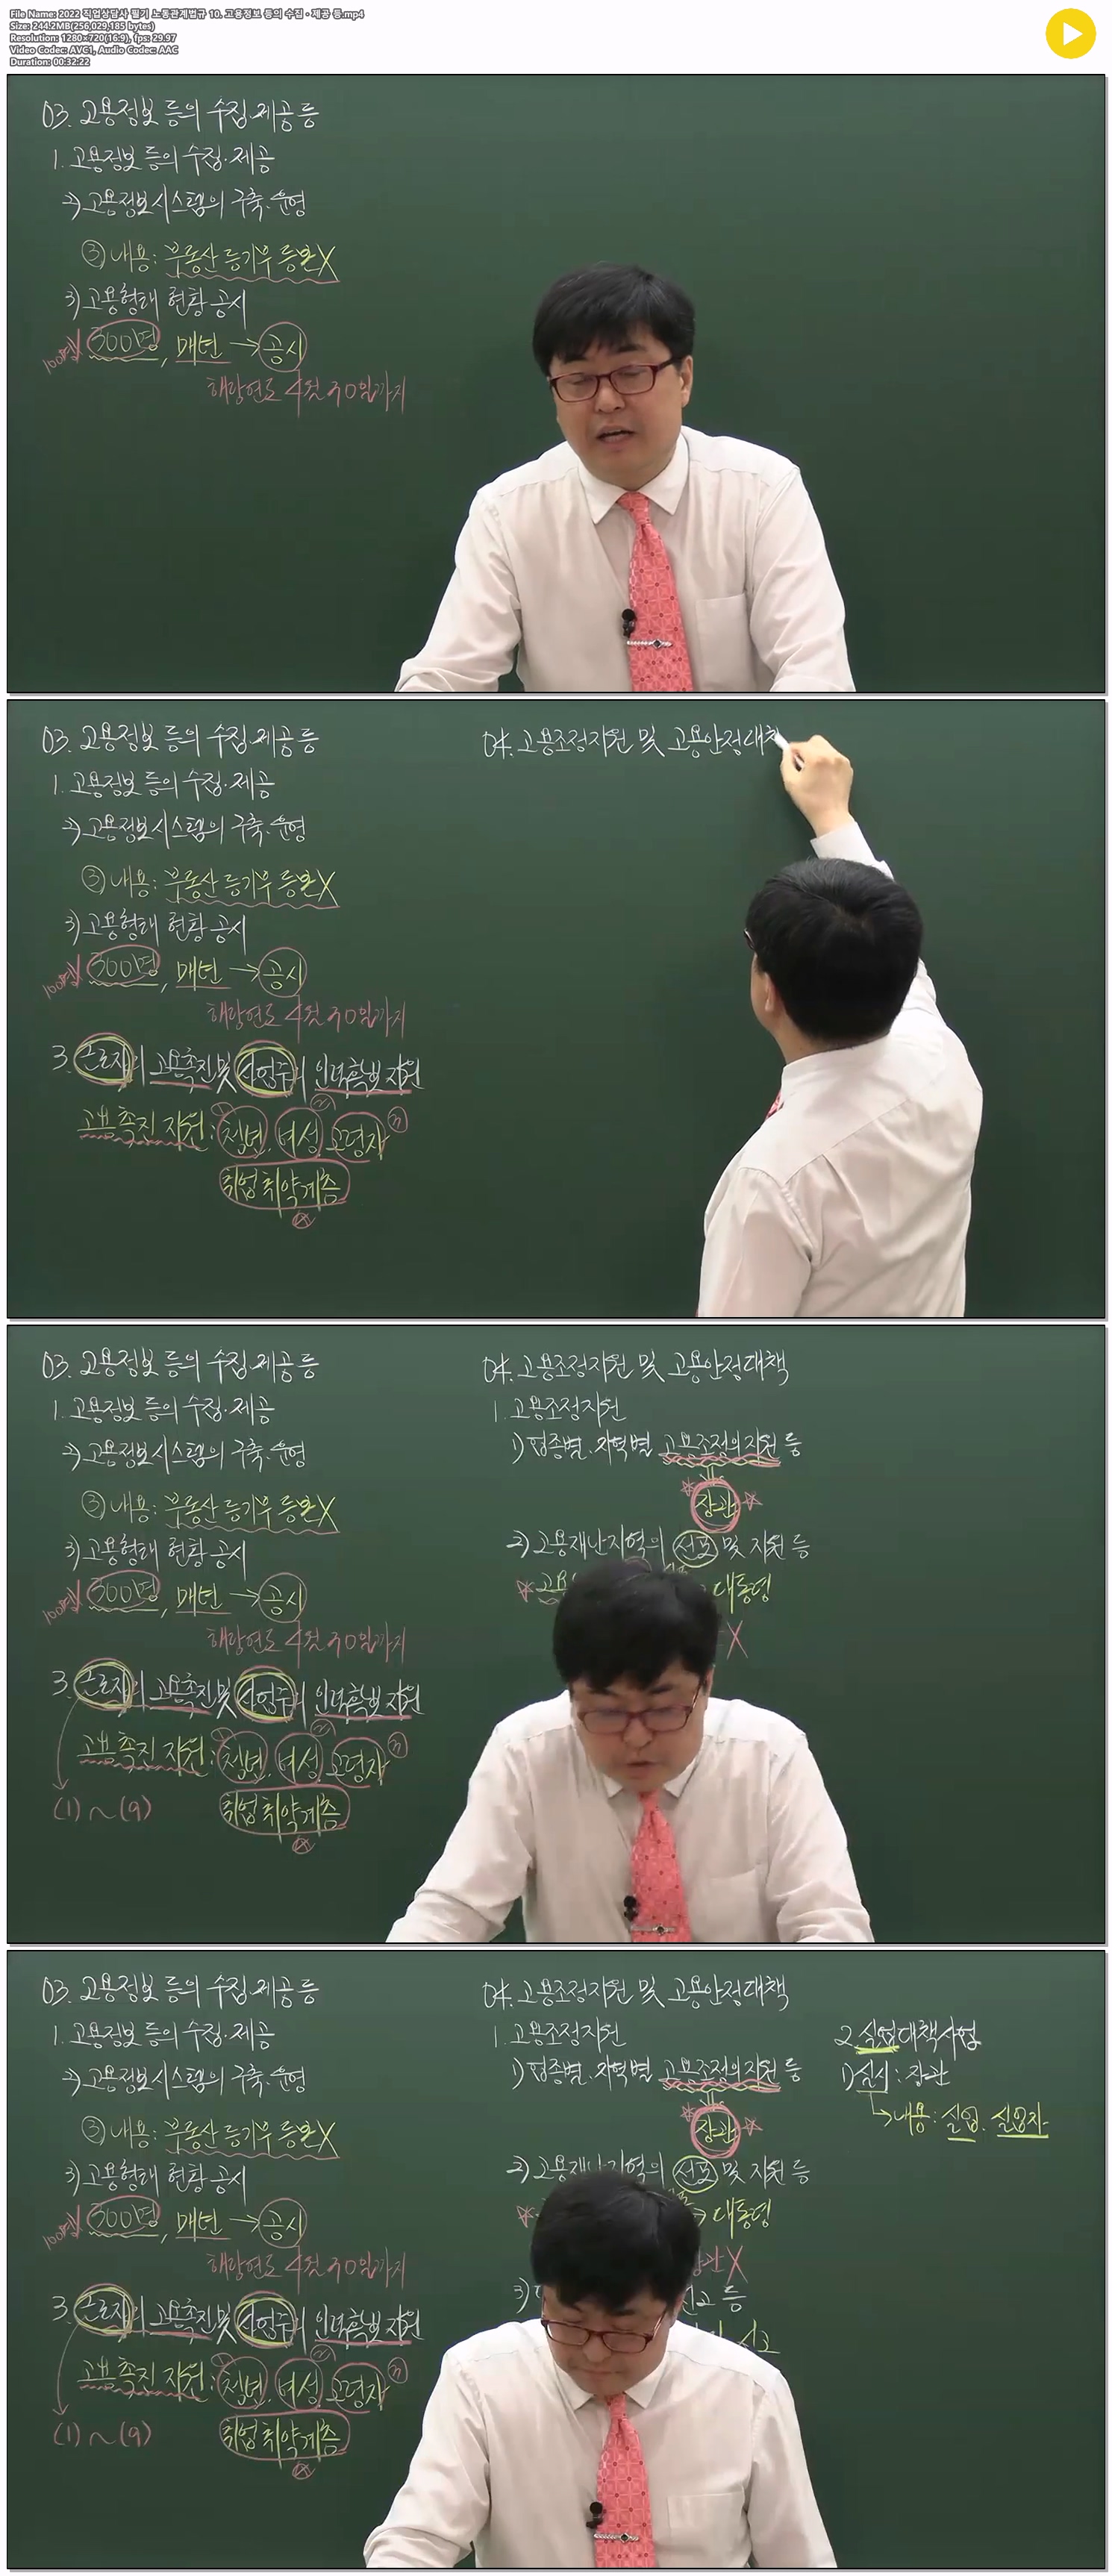 File Name: 2022 직업상담사 필기 노동관계법규 10. 고용정보 등의 수집·제공 등.mp4
Size: 244.2MB(256,029,185 bytes)
Resolution: 1280×720(16:9), fps: 29.97
Video Codec: AVC1, Audio Codec: AAC
Duration: 00:32:22
03. 고용정보 등의 수집·제공 등
1. 고용정보 등의 수집·제공
2) 고용정보시스템의 구축·운영
③ 내용: 부동산등기부등본X
3) 고용형태 현황 공시
100명X 300명, 매년 → 공시
해당연도 4월 30일까지
03. 고용정보 등의 수집·제공 등
1. 고용정보 등의 수집·제공
2) 고용정보시스템의 구축·운영
③ 내용: 부동산등기부등본X
3) 고용형태 현황 공시
100명X 300명, 매년 → 공시
해당연도 4월 30일까지
3. 근로자의 고용촉진 및 사업주의 인력확보 지원
고용촉진 지원: 청년, 여성, 고령자
취업취약계층
04. 고용조정지원 및 고용안정대책
03. 고용정보 등의 수집·제공 등
1. 고용정보 등의 수집·제공
2) 고용정보시스템의 구축·운영
③ 내용: 부동산등기부등본X
3) 고용형태 현황 공시
100명X 300명, 매년 → 공시
해당연도 4월 30일까지
3. 근로자의 고용촉진 및 사업주의 인력확보 지원
고용촉진 지원: 청년, 여성, 고령자
(1)~(9) 취업취약계층
04. 고용조정지원 및 고용안정대책
1. 고용조정지원
1) 업종별·지역별 고용조정의 지원 등
장관
2) 고용재난지역의 선포 및 지원 등
대통령
X
03. 고용정보 등의 수집·제공 등
1. 고용정보 등의 수집·제공
2) 고용정보시스템의 구축·운영
③ 내용: 부동산등기부등본X
3) 고용형태 현황 공시
100명X 300명, 매년 → 공시
해당연도 4월 30일까지
3. 근로자의 고용촉진 및 사업주의 인력확보 지원
고용촉진 지원: 청년, 여성, 고령자
(1)~(9) 취업취약계층
04. 고용조정지원 및 고용안정대책
1. 고용조정지원
1) 업종별·지역별 고용조정의 지원 등
장관
2) 고용재난지역의 선포 및 지원 등
→ 대통령
장관X
3) 신고 등
2. 실업대책사업
1) 실시: 장관
→ 내용: 실업, 실업자